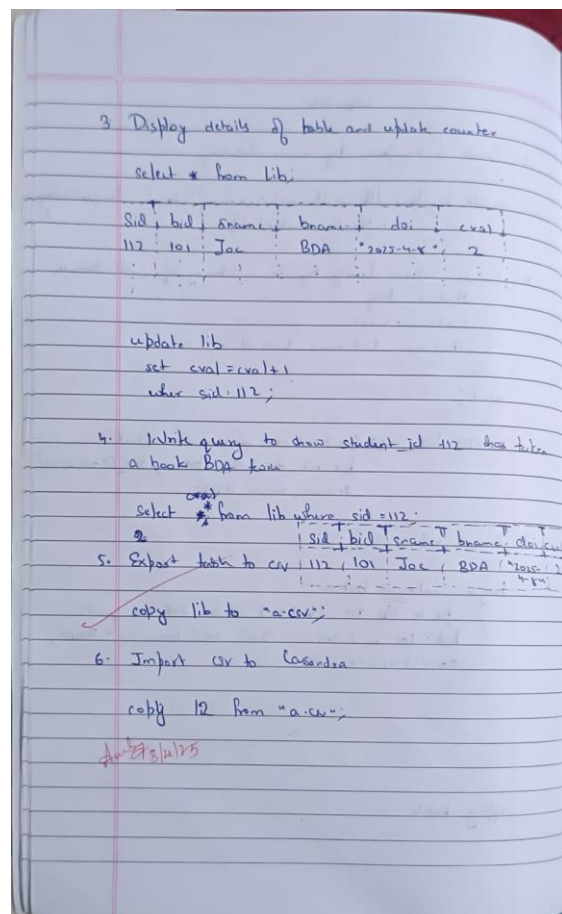 3 Display details of table and update counter
select * from lib;
Sid bid sname bname doi cval
112 101 Joe BDA "2025-4-8" 2
update lib
set cval = cval+1
wher sid = 112 ;
4. Write query to show student_id 112 has taken
a book BDA
cval
select * from lib where sid = 112 ;
2
sid bid sname bname doi
5. Export table to csv 112 101 Joe BDA "2025-4-8"
copy lib to "a.csv";
6. Import csv to Cassandra
copy 12 from "a.csv";